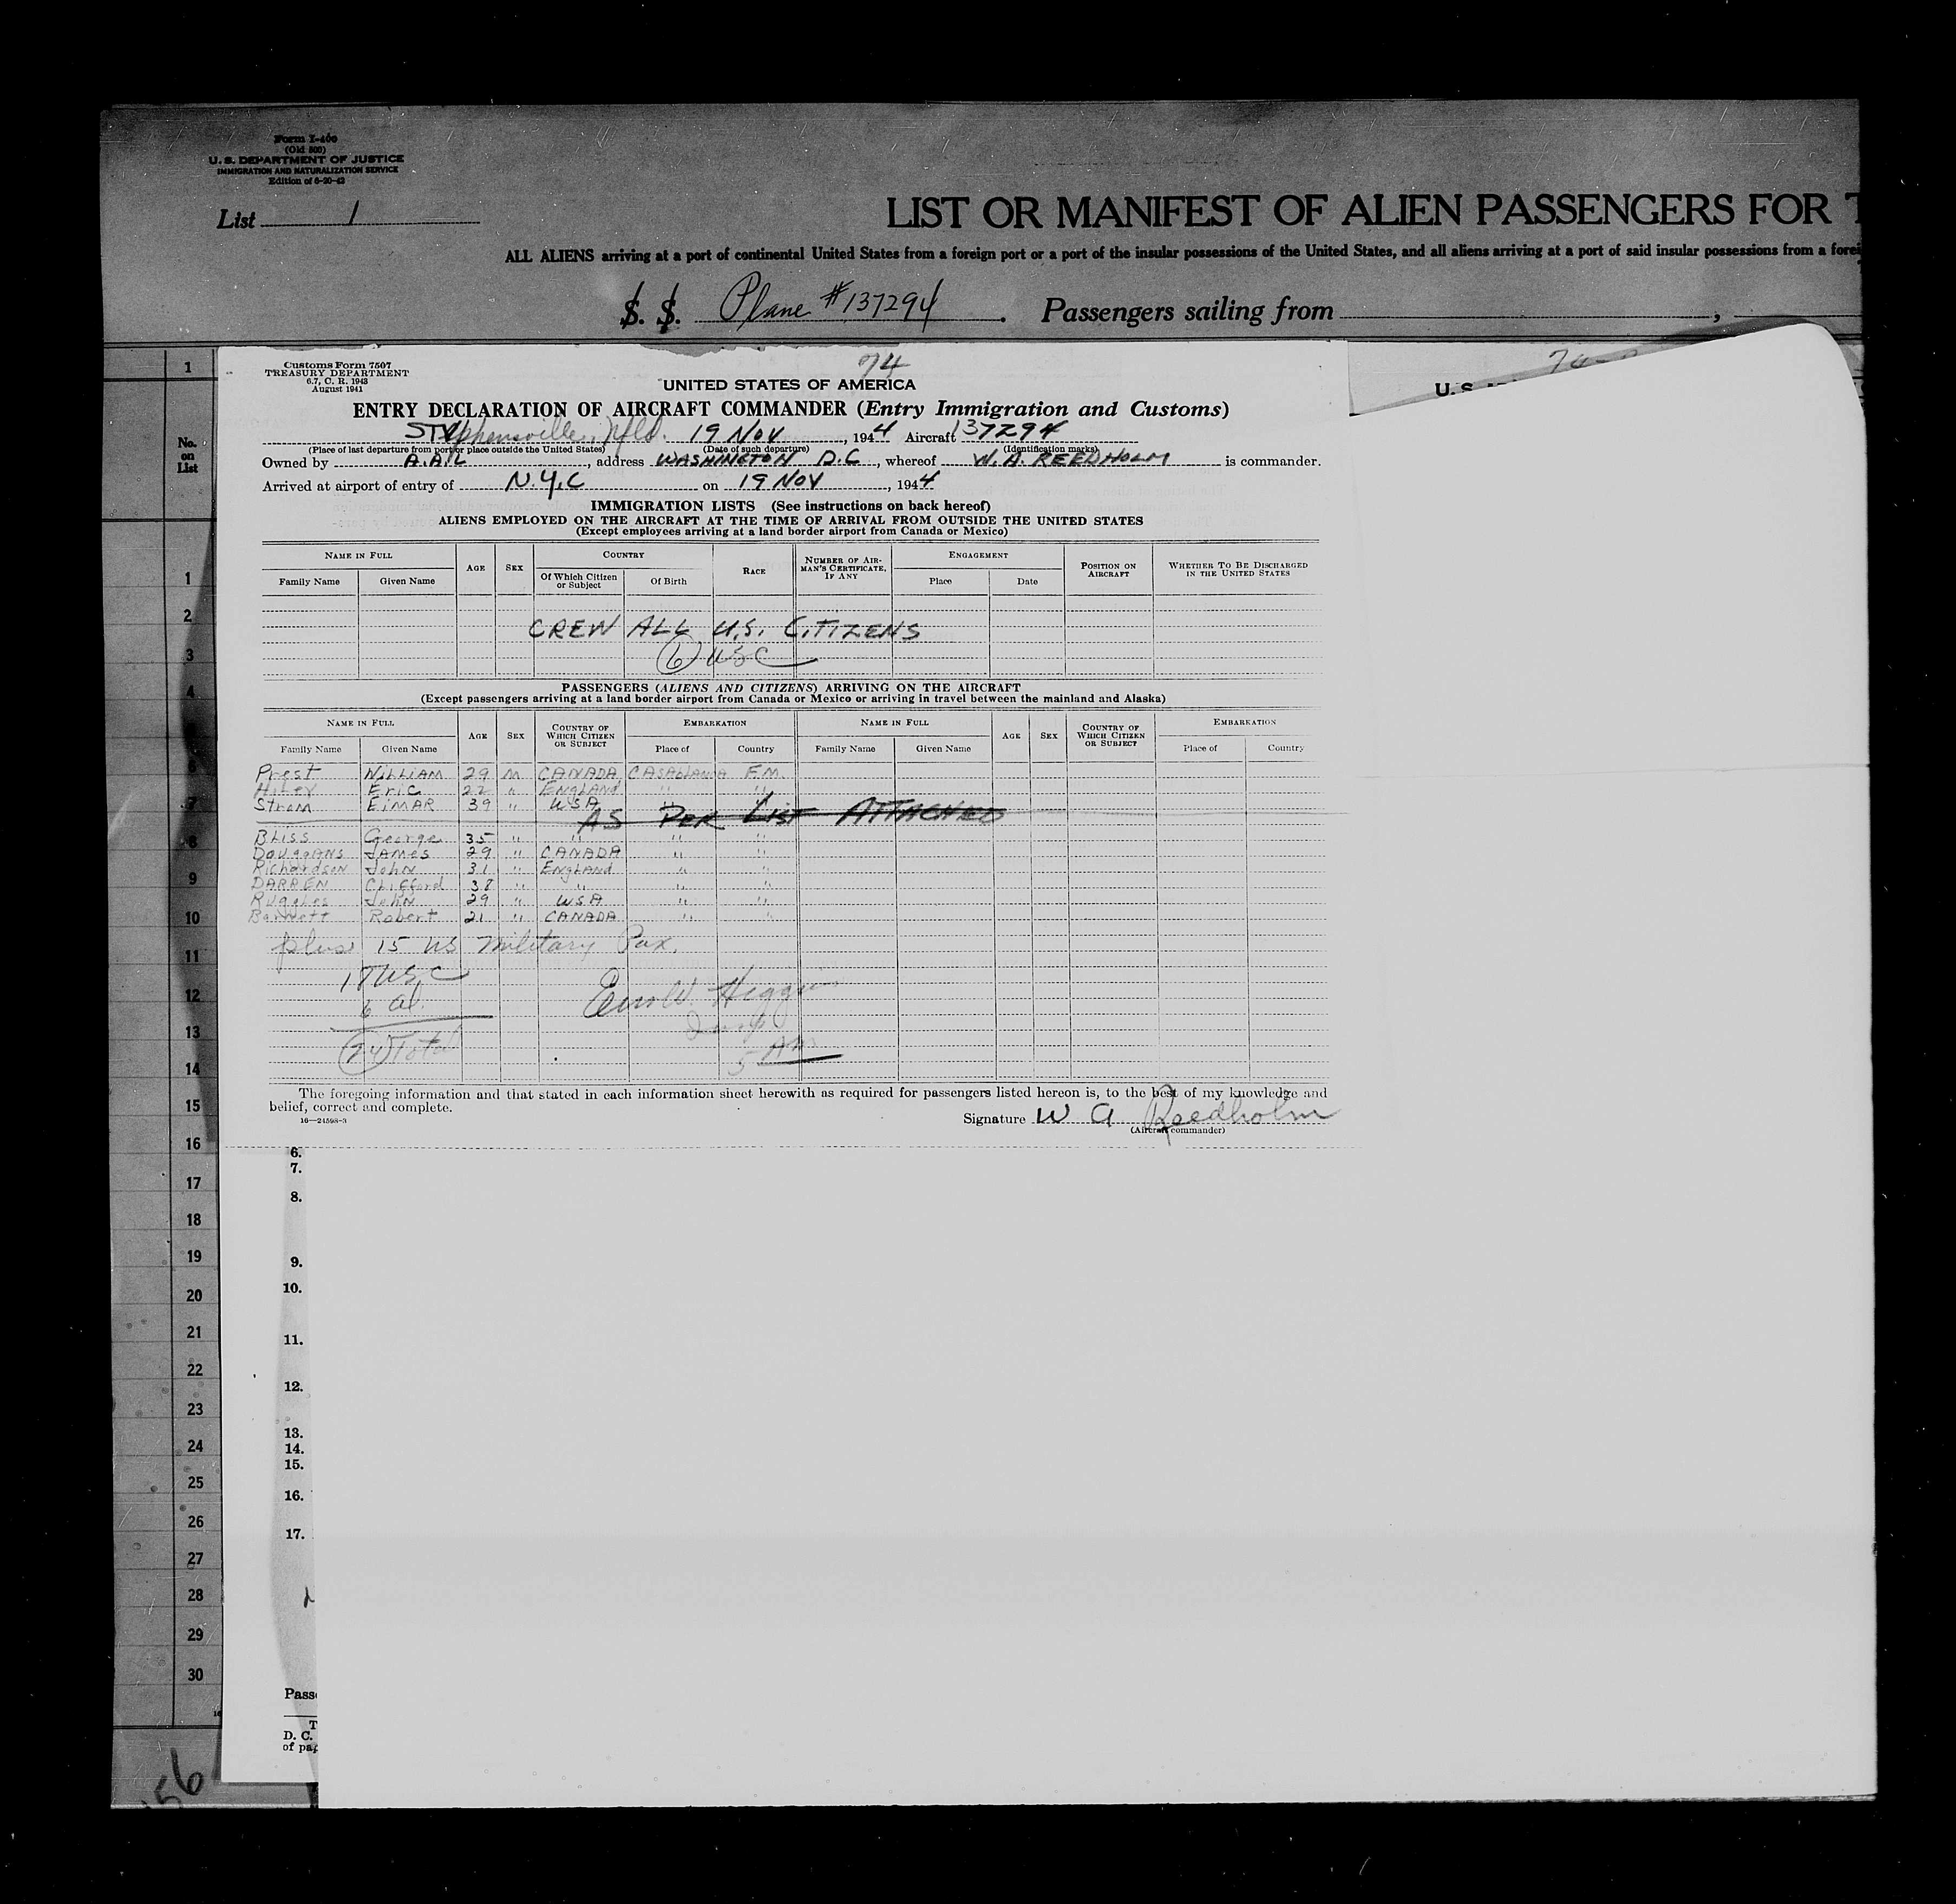 Form I-400
(Old 500)
U. S. DEPARTMENT OF JUSTICE
IMMIGRATION AND NATURALIZATION SERVICE
Edition of 6-20-42
List 1
LIST OR MANIFEST OF ALIEN PASSENGERS FOR T
ALL ALIENS arriving at a port of continental United States from a foreign port or a port of the insular possessions of the United States, and all aliens arriving at a port of said insular possessions from a forei
S. S. Plane #137294 . Passengers sailing from ,
Customs Form 7507
TREASURY DEPARTMENT
6.7, C. R. 1943
August 1941
74
UNITED STATES OF AMERICA
U. S.
ENTRY DECLARATION OF AIRCRAFT COMMANDER (Entry Immigration and Customs)
Stephensville, Nfld. 19 NOV , 1944 Aircraft 137294
(Place of last departure from port or place outside the United States) (Date of such departure) (Identification marks)
Owned by A.A.L , address WASHINGTON D.C , whereof W. A. REEDHOLM is commander.
Arrived at airport of entry of N.Y.C on 19 NOV , 1944
IMMIGRATION LISTS (See instructions on back hereof)
ALIENS EMPLOYED ON THE AIRCRAFT AT THE TIME OF ARRIVAL FROM OUTSIDE THE UNITED STATES
(Except employees arriving at a land border airport from Canada or Mexico)
NAME IN FULL AGE SEX COUNTRY RACE NUMBER OF AIRMAN'S CERTIFICATE, IF ANY ENGAGEMENT POSITION ON AIRCRAFT WHETHER TO BE DISCHARGED IN THE UNITED STATES
Family Name Given Name Of Which Citizen or Subject Of Birth Place Date
CREW ALL U.S. CITIZENS
6 USC
PASSENGERS (ALIENS AND CITIZENS) ARRIVING ON THE AIRCRAFT
(Except passengers arriving at a land border airport from Canada or Mexico or arriving in travel between the mainland and Alaska)
NAME IN FULL AGE SEX COUNTRY OF WHICH CITIZEN OR SUBJECT EMBARKATION NAME IN FULL AGE SEX COUNTRY OF WHICH CITIZEN OR SUBJECT EMBARKATION
Family Name Given Name Place of Country Family Name Given Name Place of Country
Prest WILLIAM 29 M CANADA CASABLANCA F.M.
Hiley Eric 22 " ENGLAND " "
Strom EIMAR 39 " USA " "
AS PER LIST ATTACHED
BLISS George 35 " " " "
James 29 " CANADA " "
Richardson John 31 " ENGLAND " "
DARREN Clifford 38 " " " "
Ruggles John 29 " USA " "
Barnett Robert 21 " CANADA " "
plus 15 US Military Pax.
18 USC
6 al.
24 Total
Higgins
Insp
The foregoing information and that stated in each information sheet herewith as required for passengers listed hereon is, to the best of my knowledge and
belief, correct and complete.
16—24598-3
Signature W A Reedholm
(Aircraft commander)
No. on List
1
1
2
3
4
6
7
8
9
10
11
12
13
14
15
16
17
18
19
20
21
22
23
24
25
26
27
28
29
30
6.
7.
8.
9.
10.
11.
12.
13.
14.
15.
16.
17.
Pass
T
D. C.
of pap
56